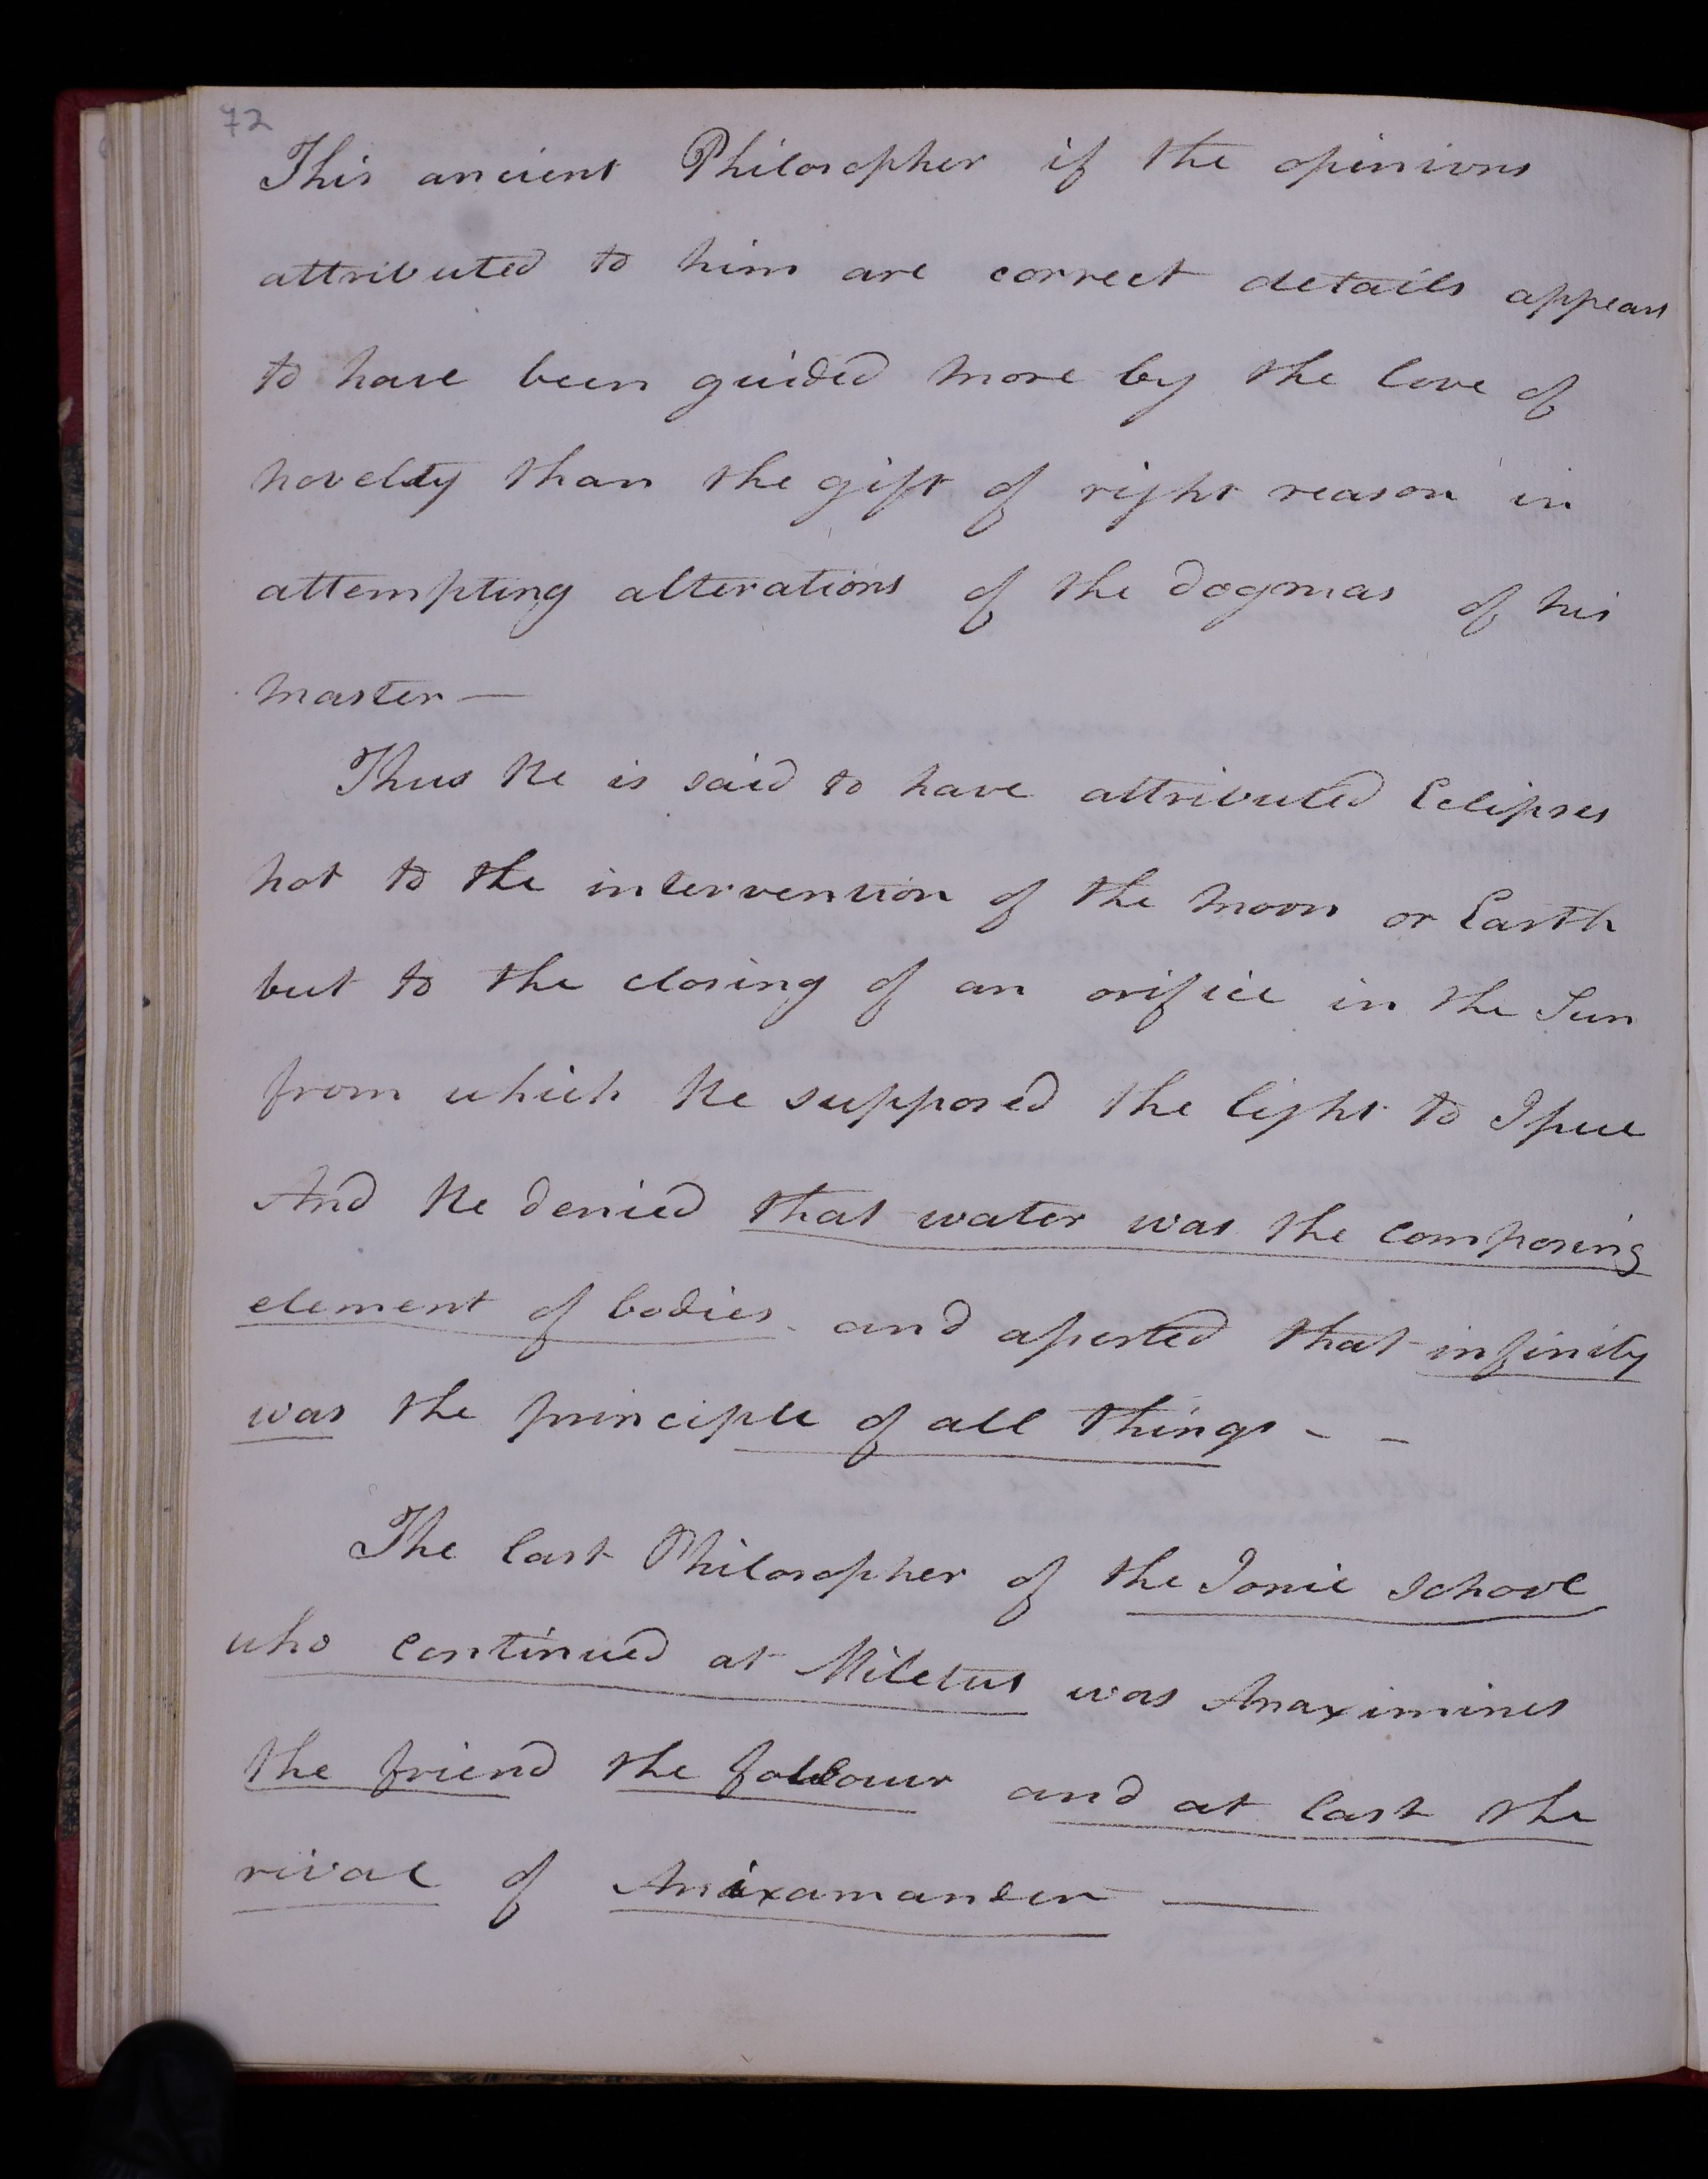 72
This ancient Philosopher if the opinions
attributed to him are correct details appears
to have been guided more by the love of
novelty than the gift of right reason in
attempting alterations of the dogmas of his
master —
Thus He is said to have attributed Eclipses
not to the intervention of the Moon or Earth
but to the closing of an orifice in the Sun
from which He supposed the light to Issue
And He denied that water was the composing
element of bodies and asserted that infinity
was the principle of all things - -
The last Philosopher of the Ionic School
who continued at Miletus was Anaximines
the friend the follower and at last the
rival of Anaixamander —